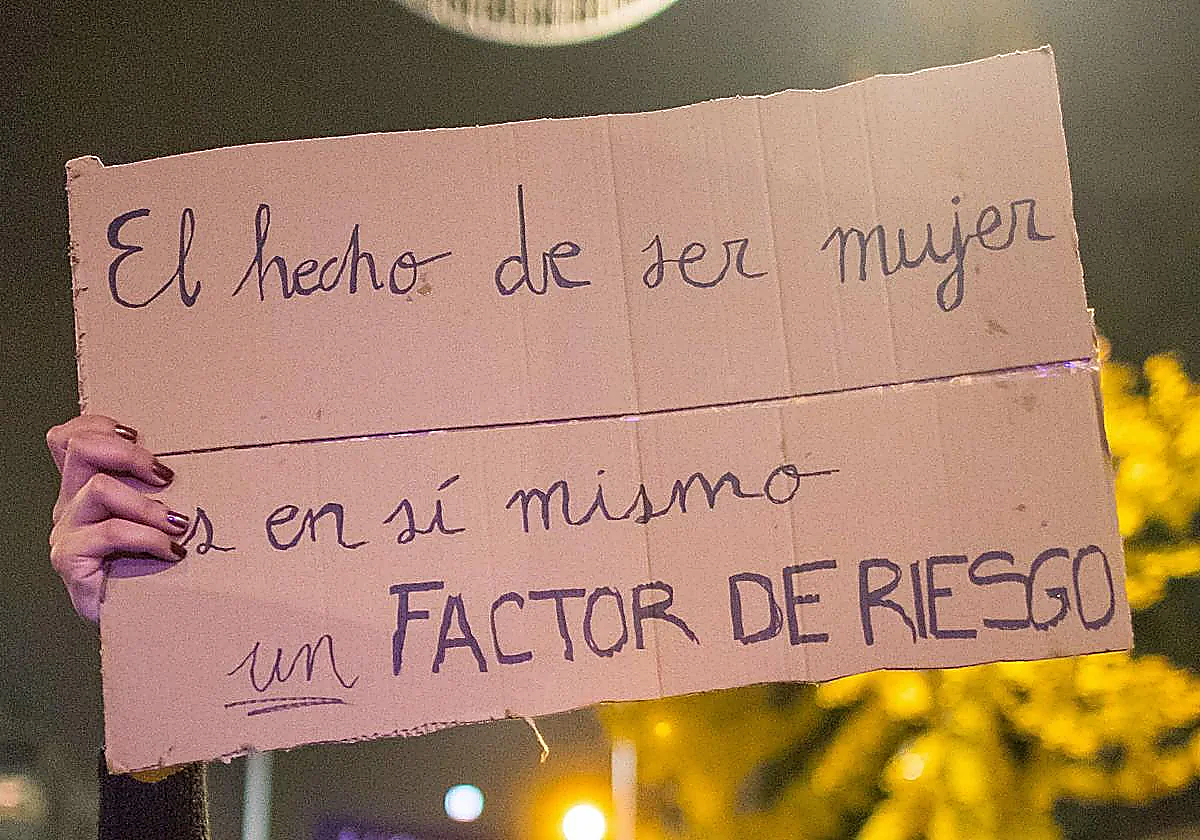 El hecho de ser mujer
s en sí mismo
un FACTOR DE RIESGO